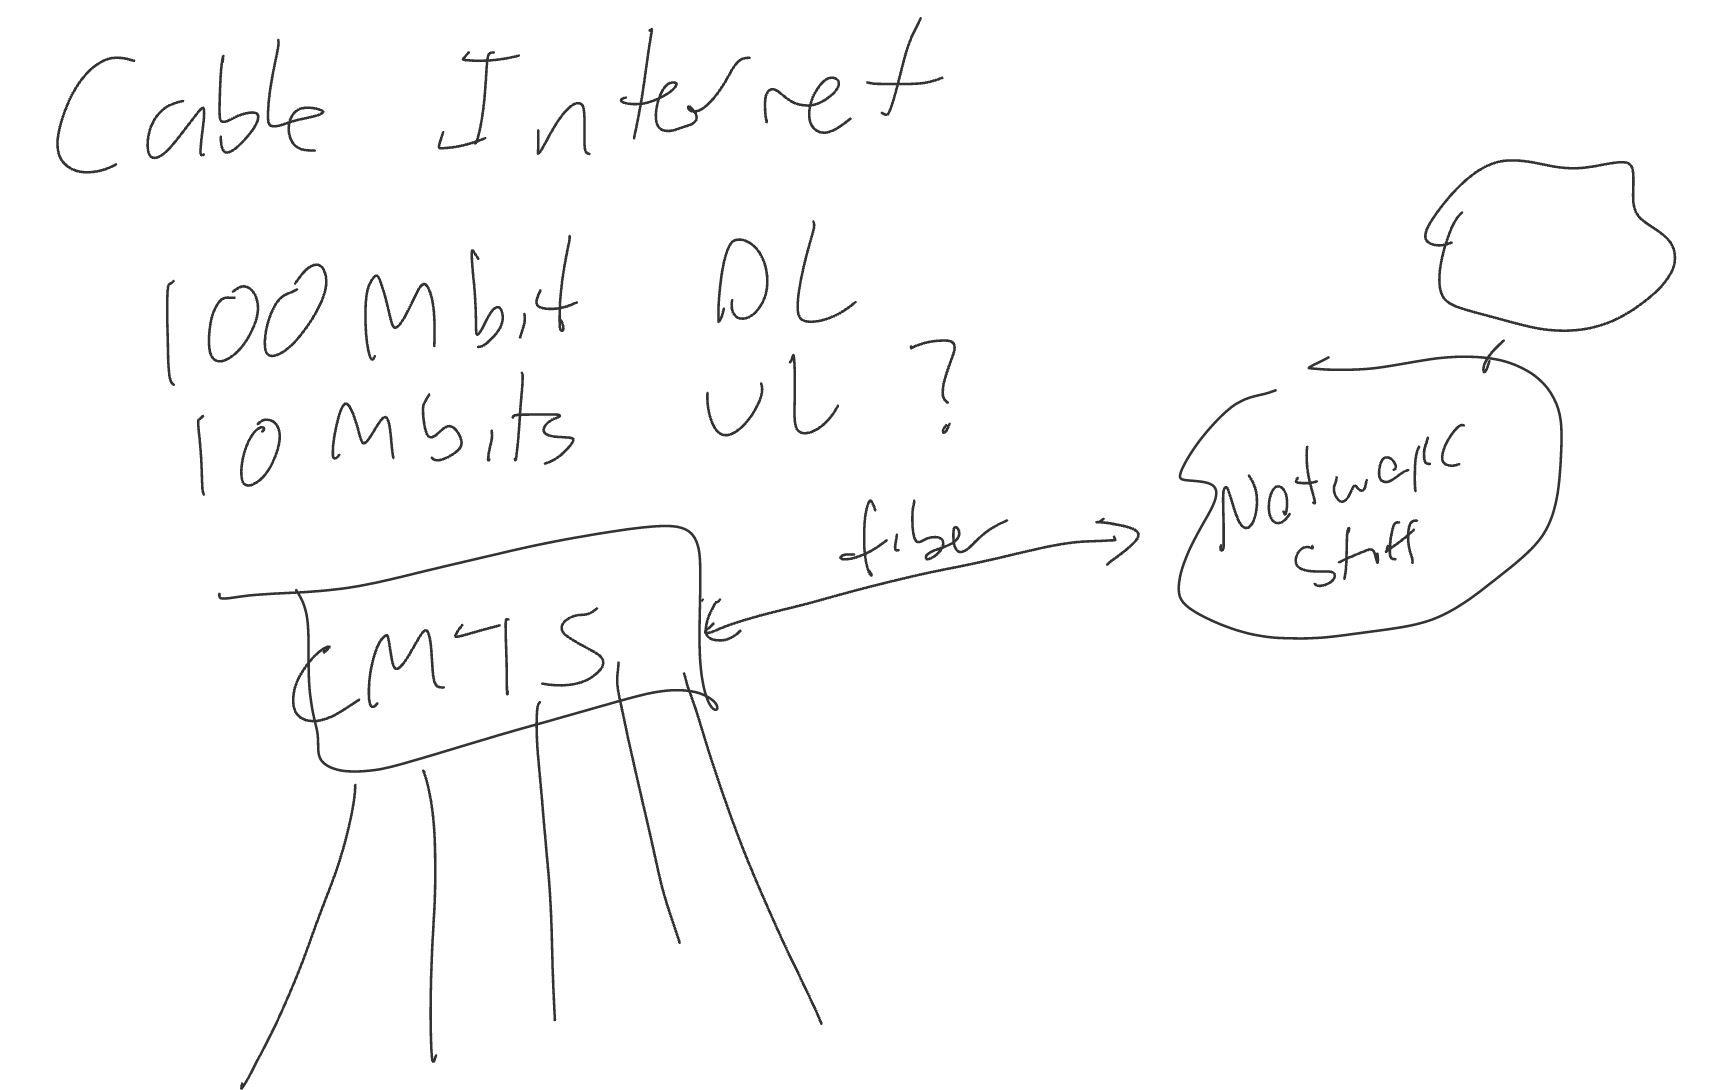 Cable Internet
100 Mbit DL
10 Mbits UL ?
fiber
Network
stuff
CMTS